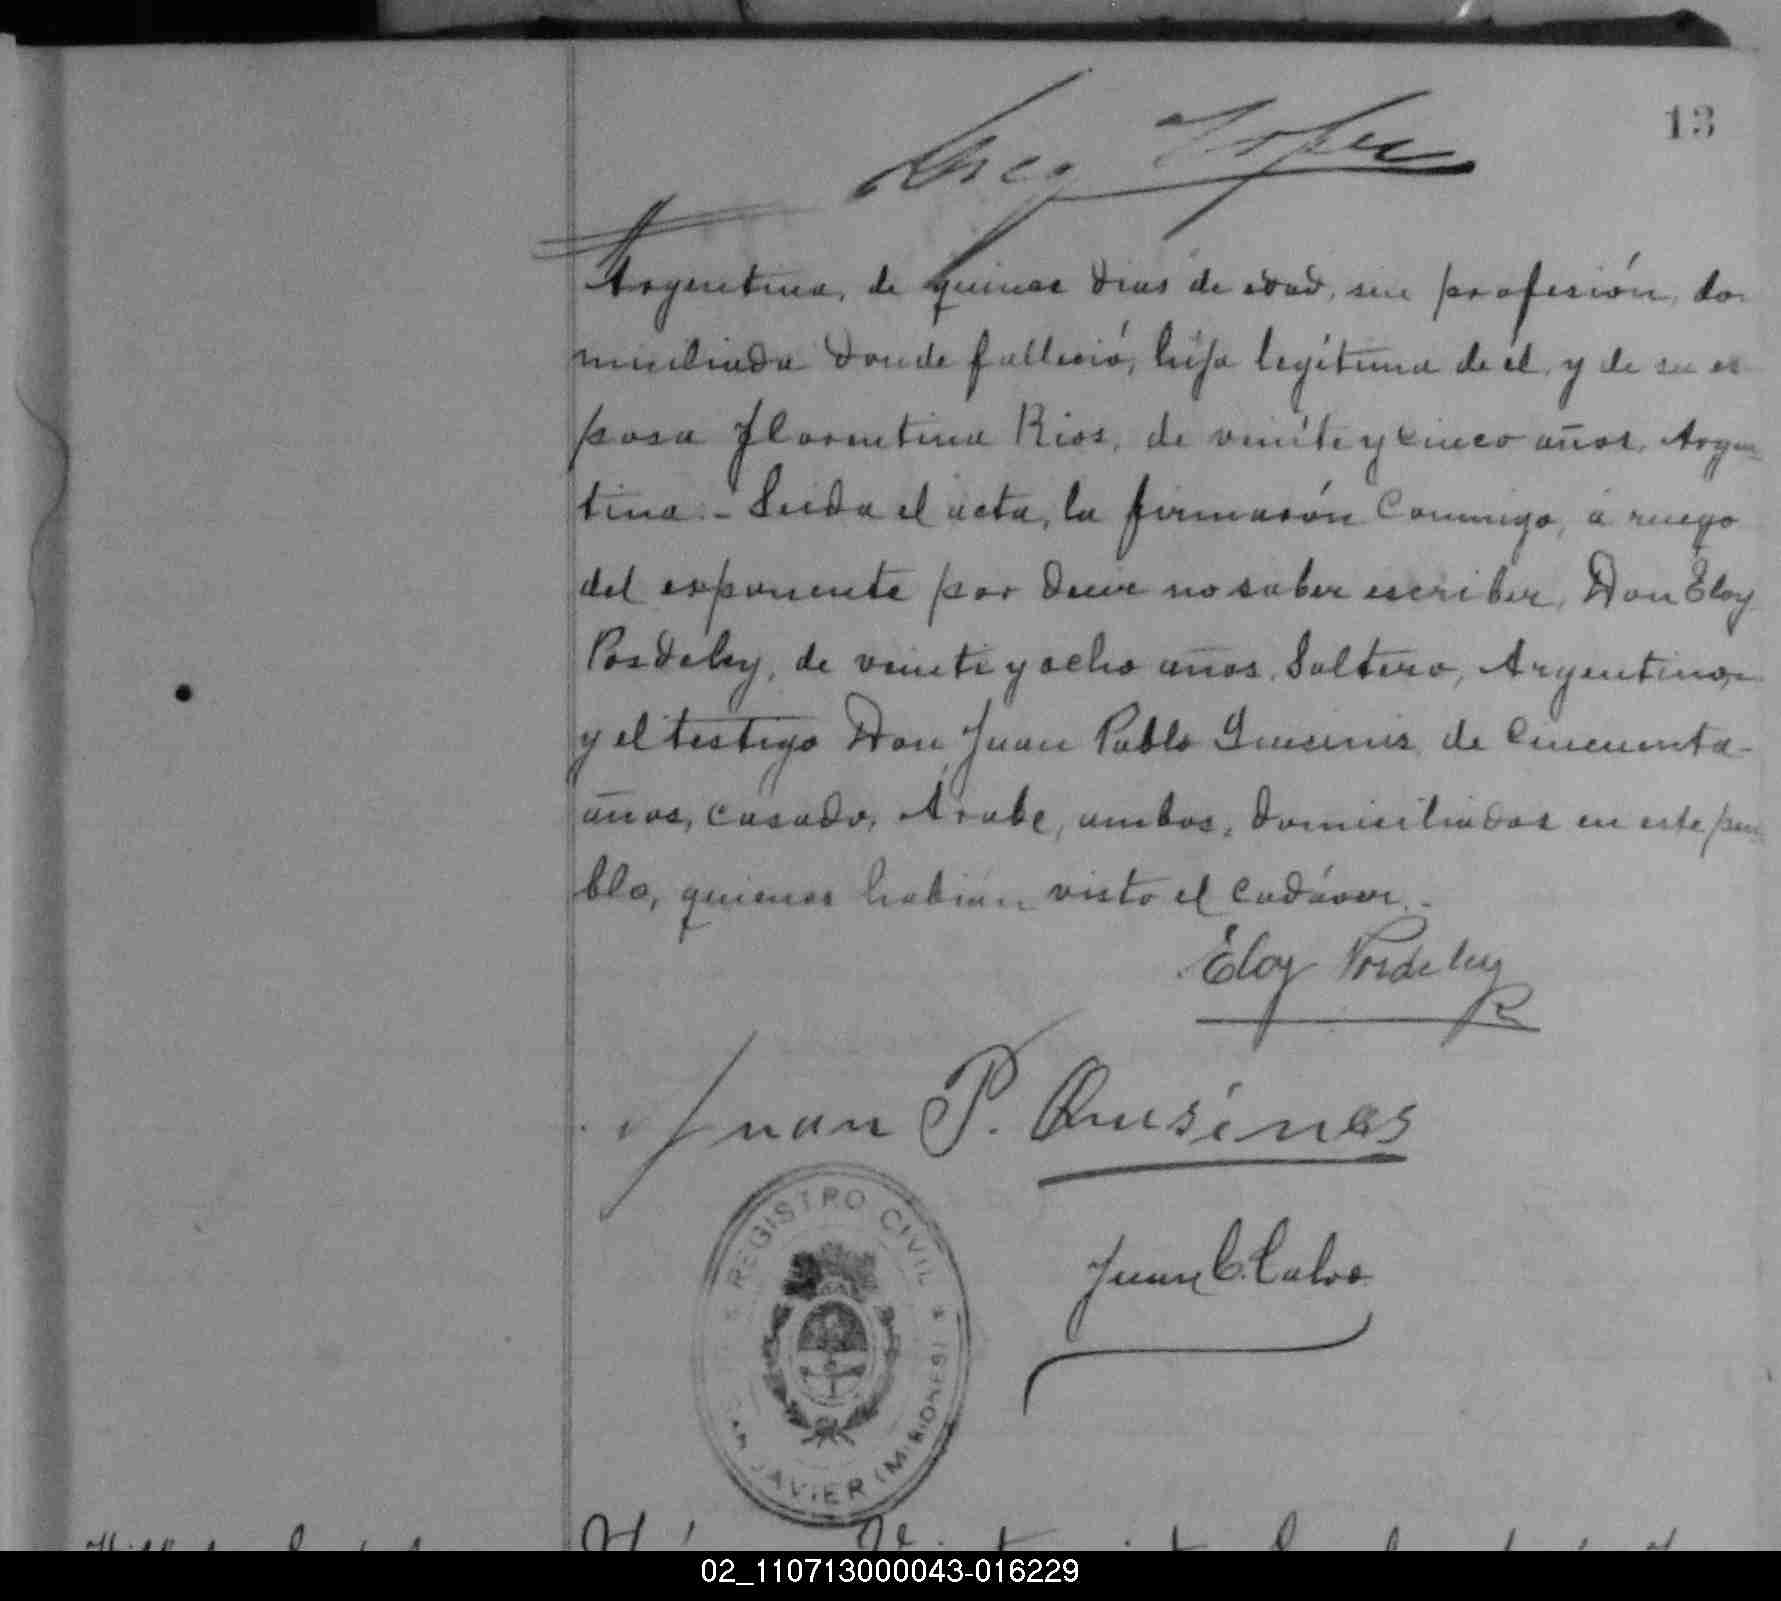 13
Argentina, de quince dias de edad, sin profesión, do-
miciliada donde falleció, hija legítima de él, y de su es-
posa Florentina Rios, de veinte y cinco años, Argen-
tina.- Leida el acta, la firmarón conmigo, á ruego
del exponente por decir no saber escriber, Don Eloy
Posdeley, de veinte y ocho años, Soltero, Argentino,
y el testigo Don Juan Pablo de Cincuenta
años, casado, Árabe, ambos, domiciliados en este pue-
blo, quienes habian visto el cadáver.-
Eloy Posdeley
Juan P.
Juan C. Calvo
REGISTRO CIVIL
SAN JAVIER (MISIONES)
02_110713000043-016229